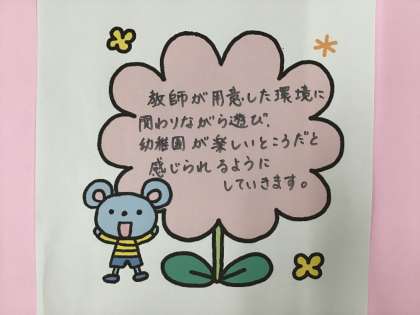 教師が用意した環境に
関わりながら遊び、
幼稚園が楽しいところだと
感じられるように
していきます。